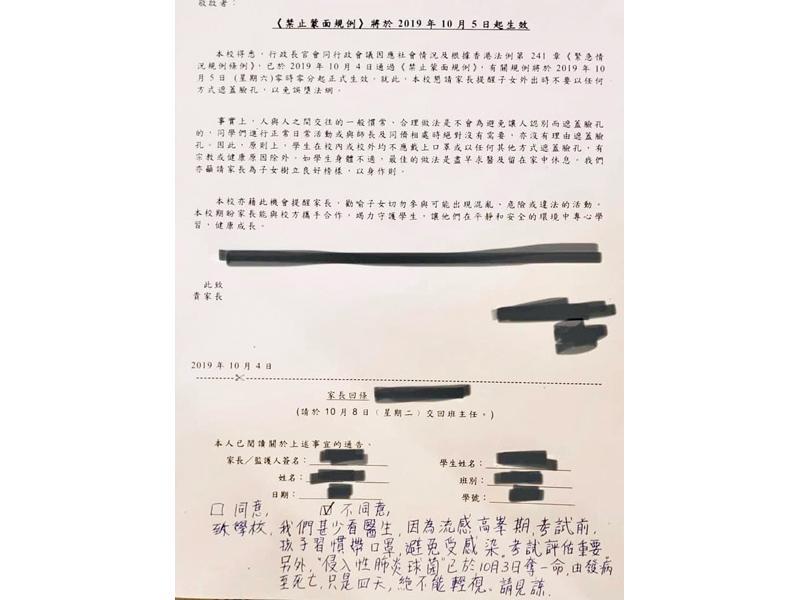 敬啟者：
《禁止蒙面規例》將於 2019 年 10 月 5 日起生效
本校得悉，行政長官會同行政會議因應社會情況及根據香港法例第 241 章《緊急情
況規例條例》，已於 2019 年 10 月 4 日通過《禁止蒙面規例》，有關規例將於 2019 年 10
月 5 日 (星期六)零時零分起正式生效。就此，本校懇請家長提醒子女外出時不要以任何
方式遮蓋臉孔，以免誤墮法網。
事實上，人與人之間交往的一般慣常、合理做法是不會為避免讓人認別而遮蓋臉孔
的，同學們進行正常日常活動或與師長及同儕相處時絕對沒有需要，亦沒有理由遮蓋臉
孔。因此，原則上，學生在校內或校外均不應戴上口罩或以任何其他方式遮蓋臉孔，有
宗教或健康原因除外，如學生身體不適，最佳的做法是盡早求醫及留在家中休息。我們
亦籲請家長為子女樹立良好榜樣，以身作則。
本校亦藉此機會提醒家長，勸喻子女切勿參與可能出現混亂、危險或違法的活動。
本校期盼家長能與校方攜手合作，竭力守護學生，讓他們在平靜和安全的環境中專心學
習，健康成長。
此致
貴家長
2019 年 10 月 4 日
家長回條
(請於 10 月 8 日﹙星期二﹚交回班主任。)
本人已閱讀關於上述事宜的通告。
家長／監護人簽名： 學生姓名：
姓名： 班別：
日期： 學號：
□ 同意， ☑ 不同意，
致學校，我們甚少看醫生，因為流感高峯期，考試前，
孩子習慣帶口罩，避免受感染，考試評估重要
另外，"侵入性肺炎球菌"已於10月3日奪一命，由發病
至死亡，只是四天，絕不能輕視。請見諒.